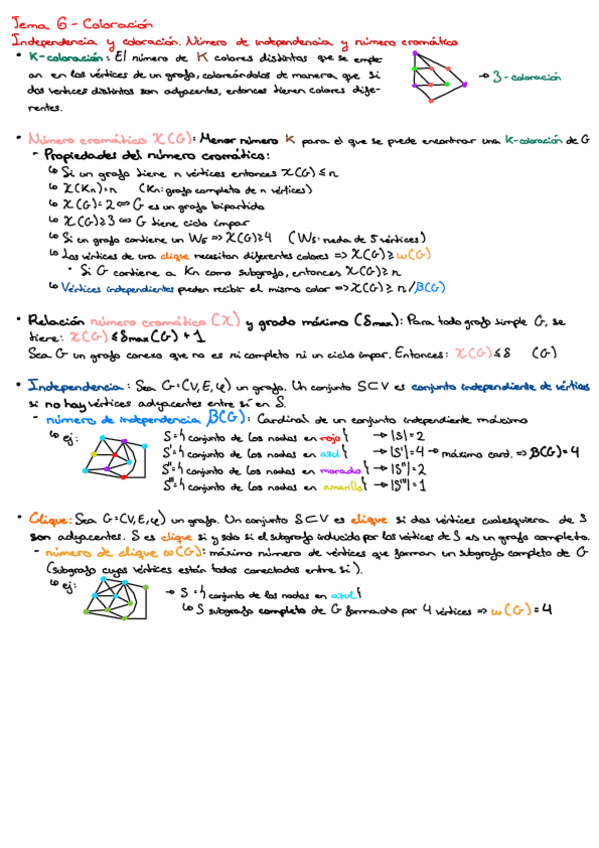 Tema 6 - Coloración
Independencia y coloración. Número de independencia y número cromático
• K-coloración: El número de K colores distintos que se emple-
an en los vértices de un grafo, coloreándolos de manera que si
dos vértices distintos son adyacentes, entonces tienen colores dife-
rentes.
→ 3-coloración
• Número cromático χ(G): Menor número K para el que se puede encontrar una K-coloración de G
- Propiedades del número cromático:
↳ Si un grafo tiene n vértices entonces χ(G) ≤ n
↳ χ(Kn)=n (Kn: grafo completo de n vértices)
↳ χ(G)=2 ⇔ G es un grafo bipartido
↳ χ(G)≥3 ⇔ G tiene ciclo impar
↳ Si un grafo contiene un W5 => χ(G)≥4 (W5: rueda de 5 vértices)
↳ Los vértices de una clique necesitan diferentes colores => χ(G) ≥ ω(G)
• Si G contiene a Kn como subgrafo, entonces χ(G) ≥ n
↳ Vértices independientes pueden recibir el mismo color => χ(G) ≥ n/β(G)
• Relación número cromático (χ) y grado máximo (δmax): Para todo grafo simple G, se
tiene: χ(G) ≤ δmax(G) + 1
Sea G un grafo conexo que no es ni completo ni un ciclo impar. Entonces: χ(G) ≤ δ (G)
• Independencia: Sea G=(V,E,φ) un grafo. Un conjunto S⊂V es conjunto independiente de vértices
si no hay vértices adyacentes entre sí en S.
- número de independencia β(G): Cardinal de un conjunto independiente máximo
↳ ej:
S = { conjunto de los nodos en rojo } → |S| = 2
S' = { conjunto de los nodos en azul } → |S'| = 4 → máximo card. => β(G) = 4
S'' = { conjunto de los nodos en morado } → |S''| = 2
S''' = { conjunto de los nodos en amarillo } → |S'''| = 1
• Clique: Sea G=(V,E,φ) un grafo. Un conjunto S⊂V es clique si dos vértices cualesquiera de S
son adyacentes. S es clique si y solo si el subgrafo inducido por los vértices de S es un grafo completo.
- número de clique ω(G): máximo número de vértices que forman un subgrafo completo de G
(subgrafo cuyos vértices están todos conectados entre sí).
↳ ej:
→ S = { conjunto de los nodos en azul }
↳ S subgrafo completo de G formado por 4 vértices => ω(G) = 4